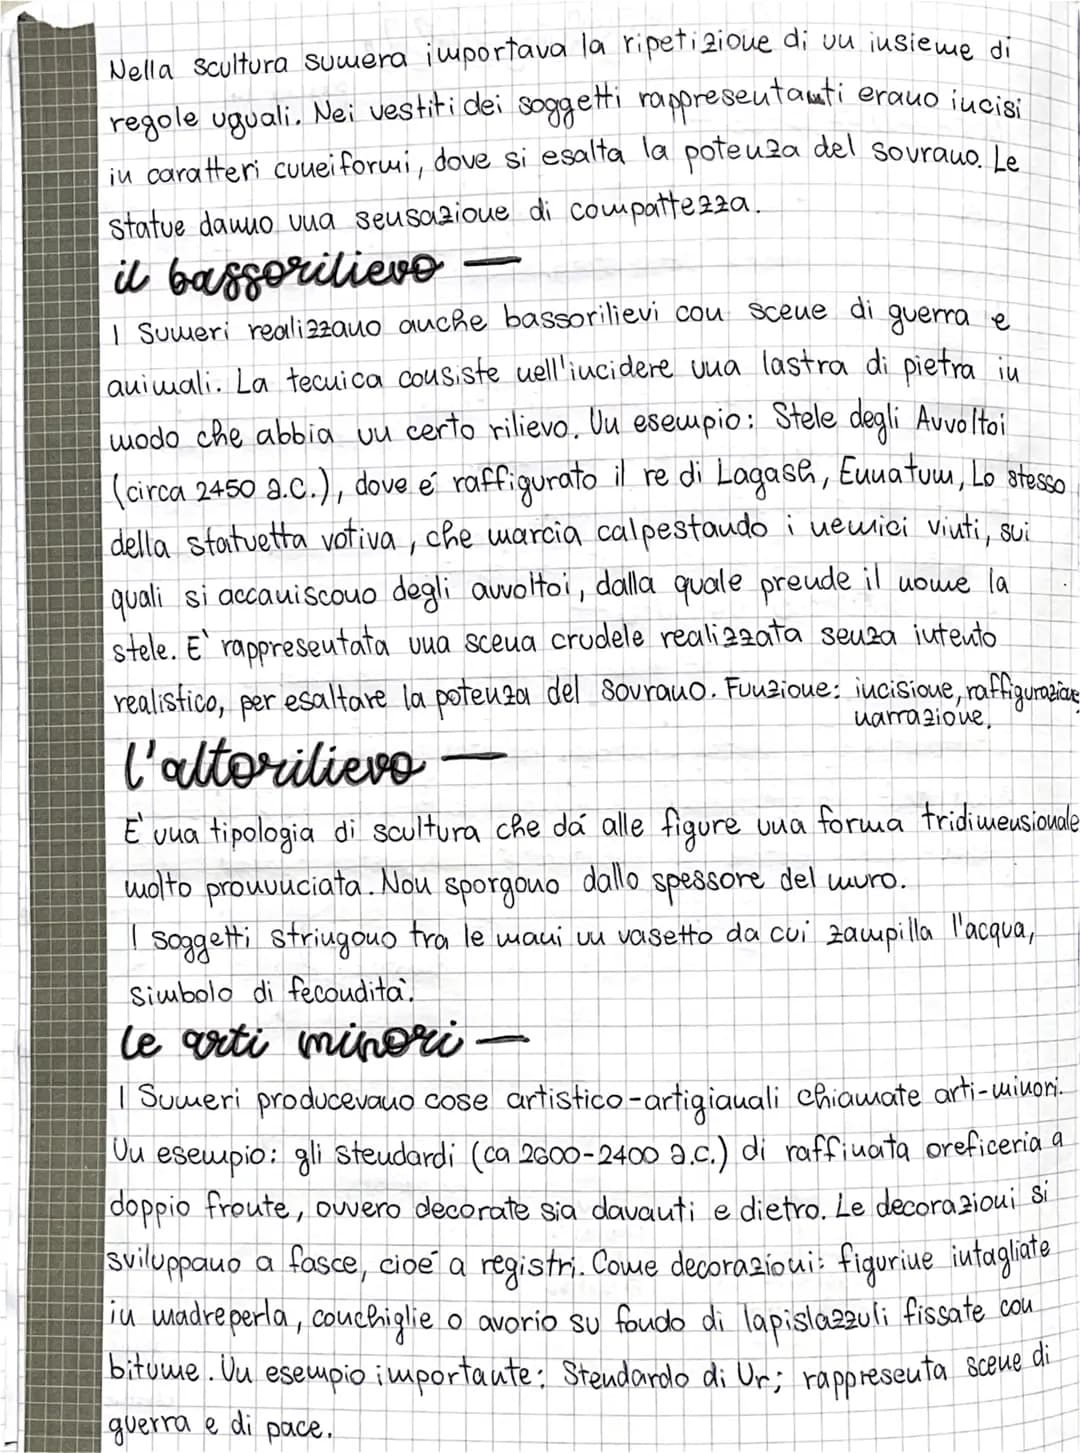 Nella scultura sumera importava la ripetizione di un insieme di
regole uguali. Nei vestiti dei soggetti rappresentanti erano incisi
in caratteri cuneiformi, dove si esalta la potenza del sovrano. Le
statue danno una sensazione di compattezza.
il bassorilievo —
I Sumeri realizzano anche bassorilievi con scene di guerra e
animali. La tecnica consiste nell'incidere una lastra di pietra in
modo che abbia un certo rilievo. Un esempio: Stele degli Avvoltoi
(circa 2450 a.C.), dove é raffigurato il re di Lagash, Ennatum, Lo stesso
della statuetta votiva, che marcia calpestando i nemici vinti, sui
quali si accaniscono degli avvoltoi, dalla quale prende il nome la
stele. E' rappresentata una scena crudele realizzata senza intento
realistico, per esaltare la potenza del sovrano. Funzione: incisione, raffigurazione,
narrazione.
l'altorilievo —
E' una tipologia di scultura che dá alle figure una forma tridimensionale
molto pronunciata. Non sporgono dallo spessore del muro.
I soggetti stringono tra le mani un vasetto da cui zampilla l'acqua,
simbolo di fecondità.
le arti minori —
I Sumeri producevano cose artistico-artigianali chiamate arti-minori.
Un esempio: gli stendardi (ca 2600-2400 a.C.) di raffinata oreficeria a
doppio fronte, ovvero decorate sia davanti e dietro. Le decorazioni si
sviluppano a fasce, cioé a registri. Come decorazioni: figurine intagliate
in madreperla, conchiglie o avorio su fondo di lapislazzuli fissate con
bitume. Un esempio importante: Stendardo di Ur; rappresenta scene di
guerra e di pace.